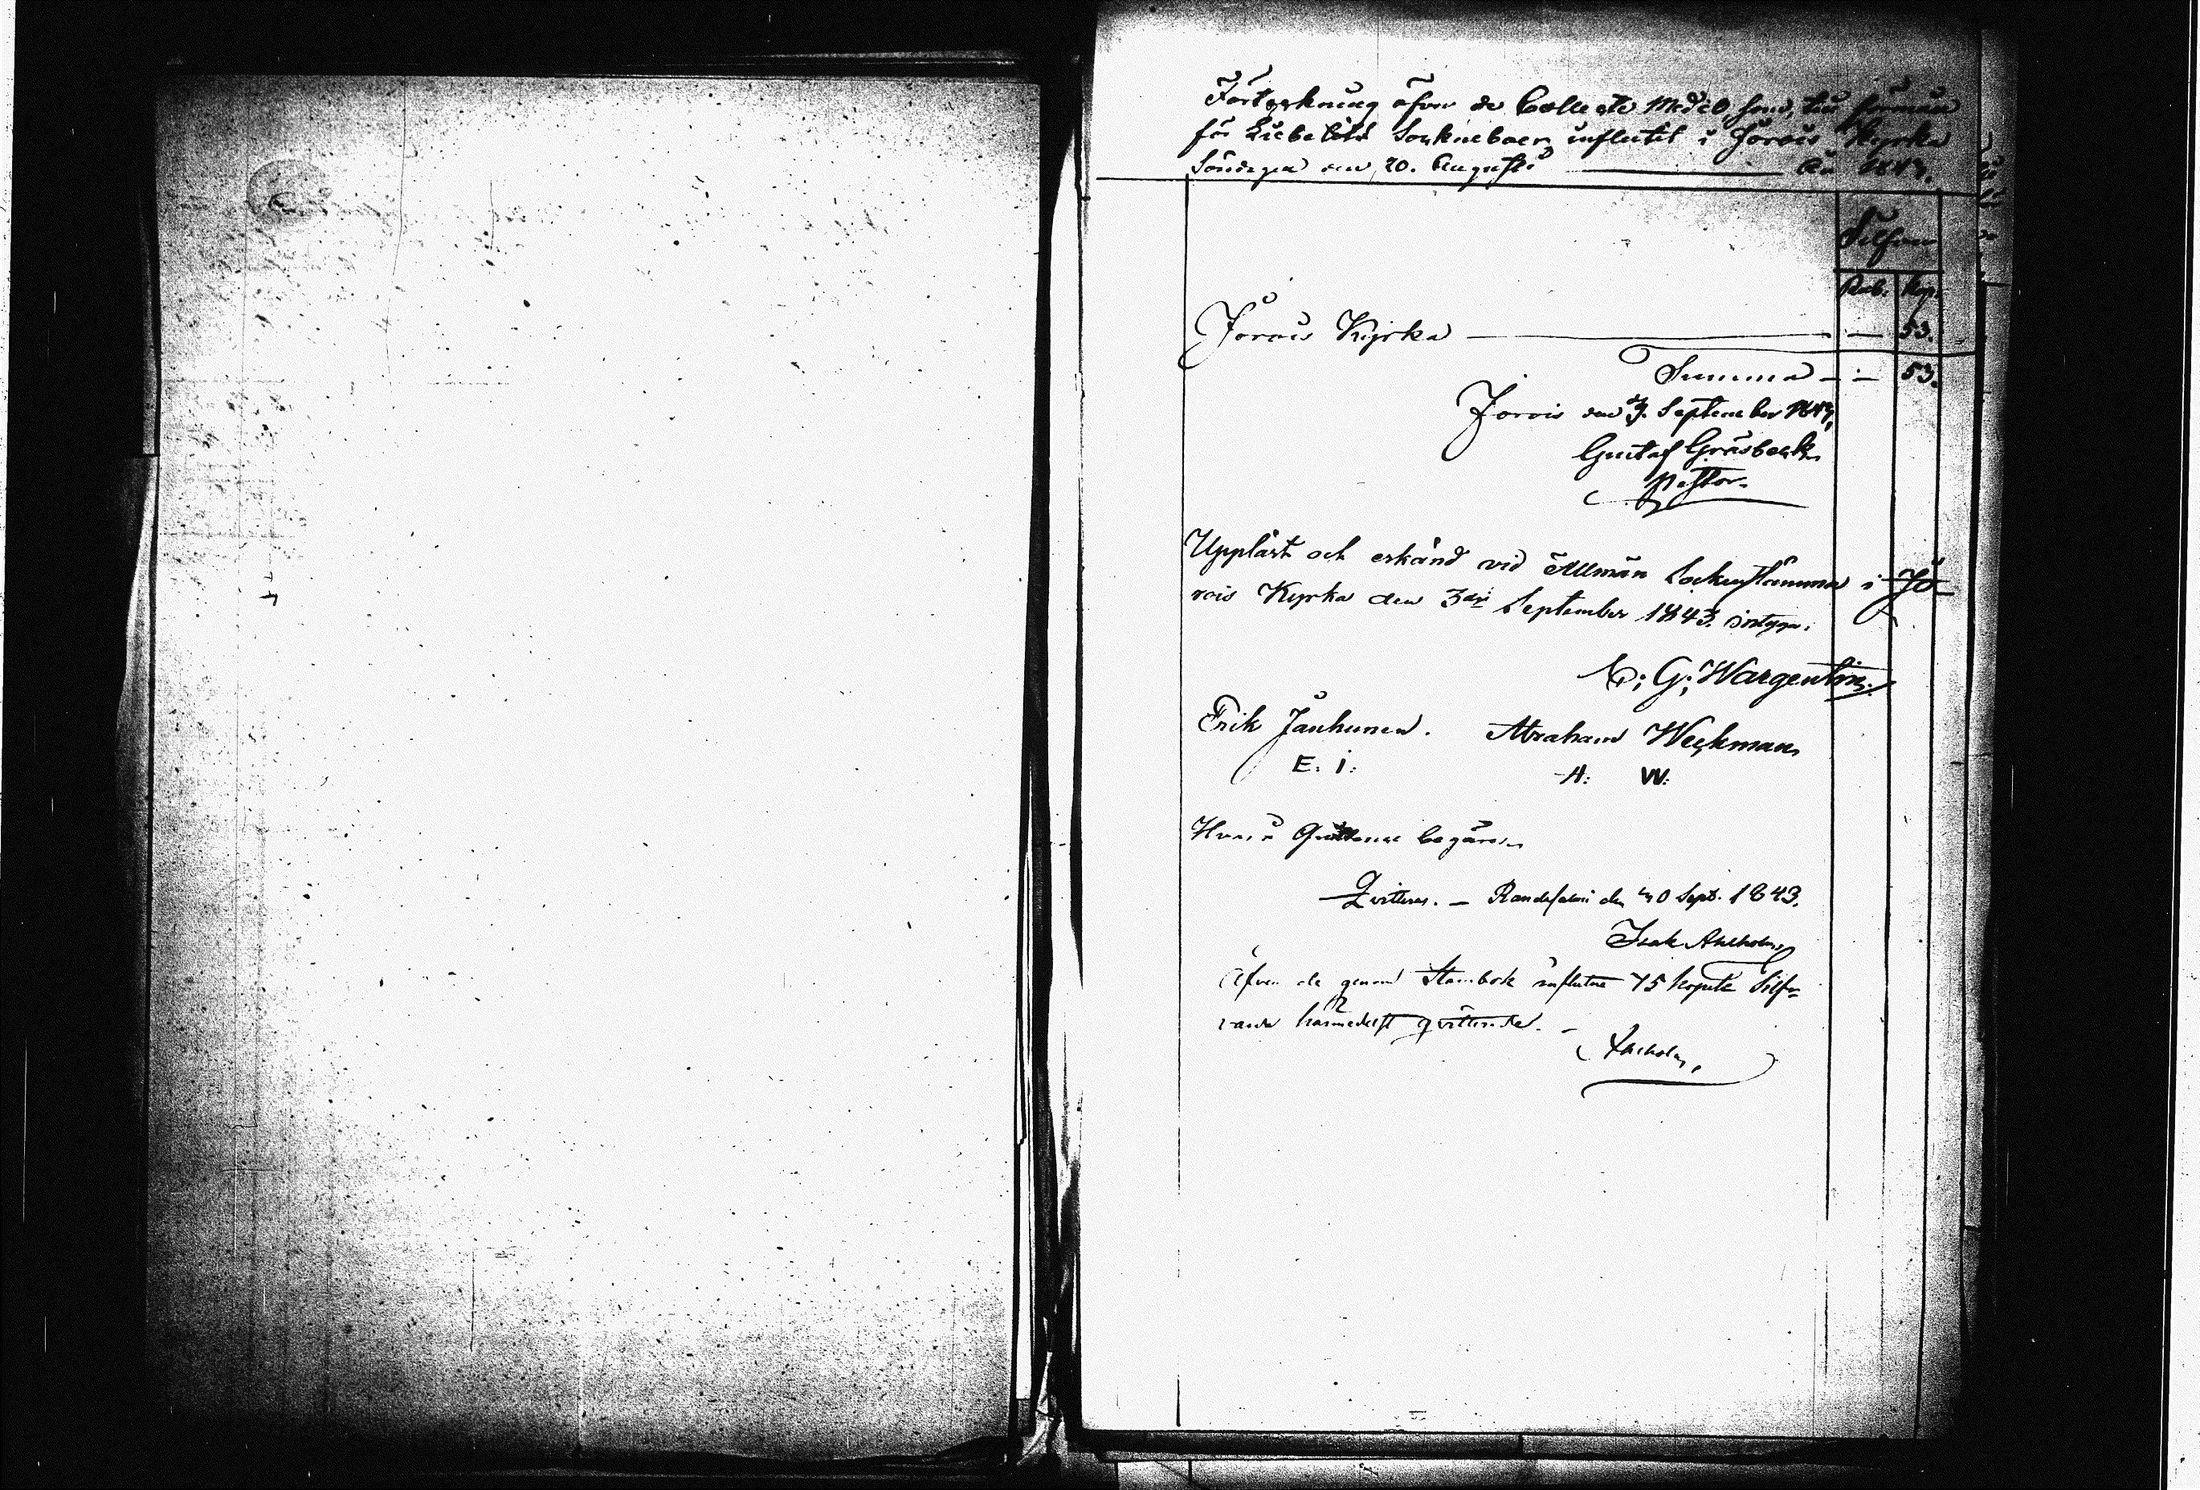 Förteckning öfver de Collecte Medel, som, till förmån
för Liebelitz Sockneboer, influtit i Jorois Kyrka
Söndagen den 20. Augusti — År 1843.
Silfver
Rub. Kop.
Jorois Kyrka — — 53.
Summa — — 53.
Jorois den 3. September 1843,
Gustaf Gråsbeck
Pastor.
Uppläst och erkänd vid Allmän Sockenstämma i Jo-
rois Kyrka den 3dje September 1843. intyga:
G: Wargentin.
Erik Janhunen. Abraham Weckman
E. i: A: W:
Hvarå Quittence begäres
Qvitteras. — Randasalmi den 30 Sept. 1843.
Isak Ahlholm
Äfven de genom Stambok influtne 75 kopek Silfver
varda härmedelst qvitterade. —
Ahlholm